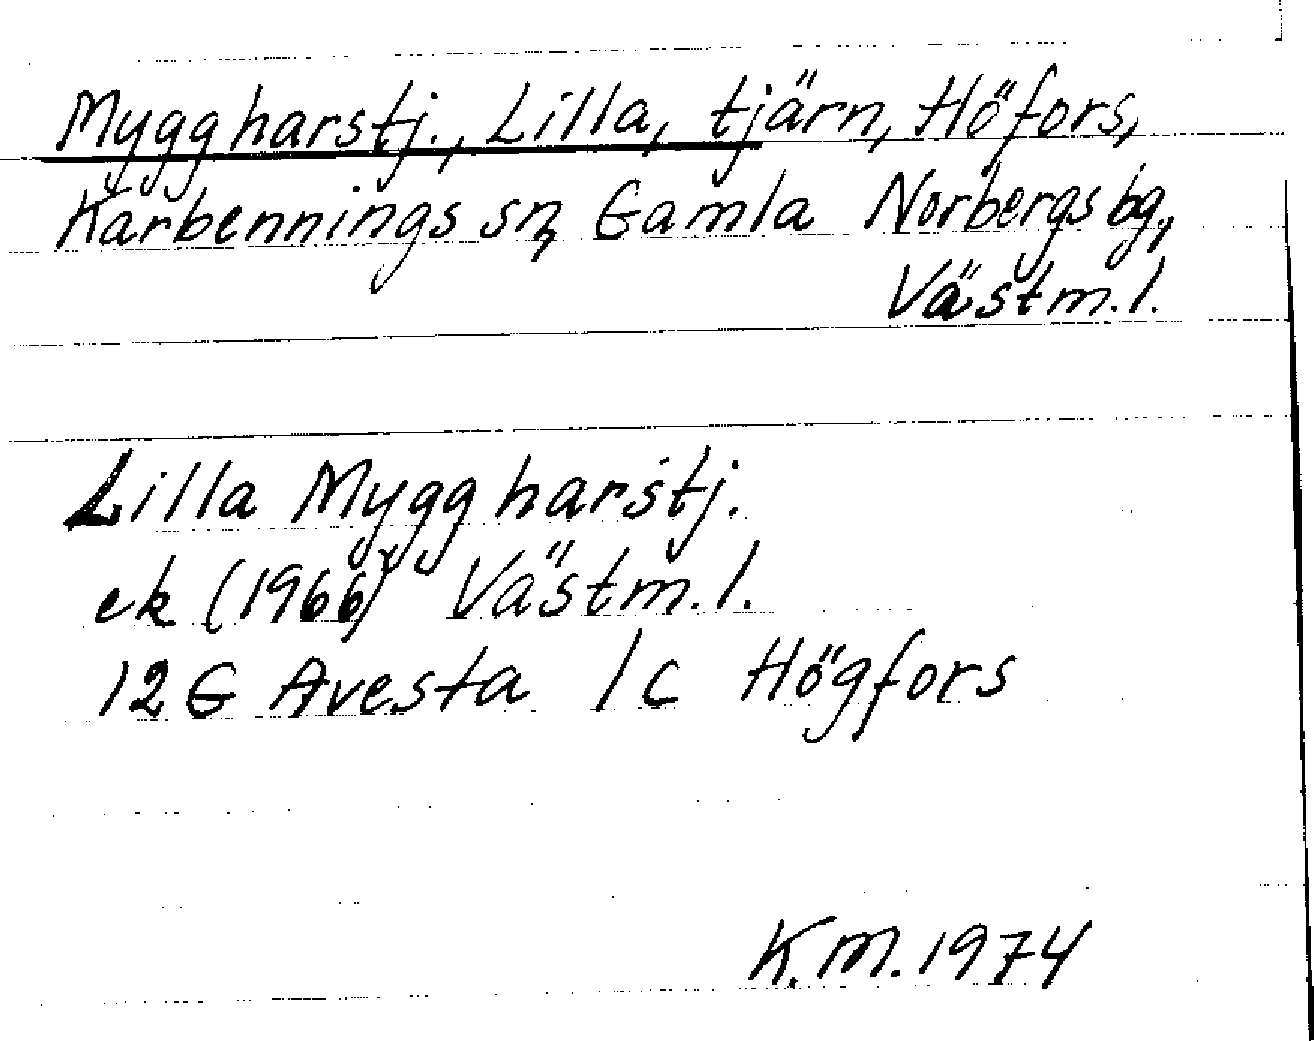 Myggharstj., Lilla, tjärn, Höfors,
Karbennings sn, Gamla Norbergs bg,
Västm.l.
Lilla Myggharstj.
ek (1966) Västm.l.
12 G Avesta 1c Högfors
K.M. 1974